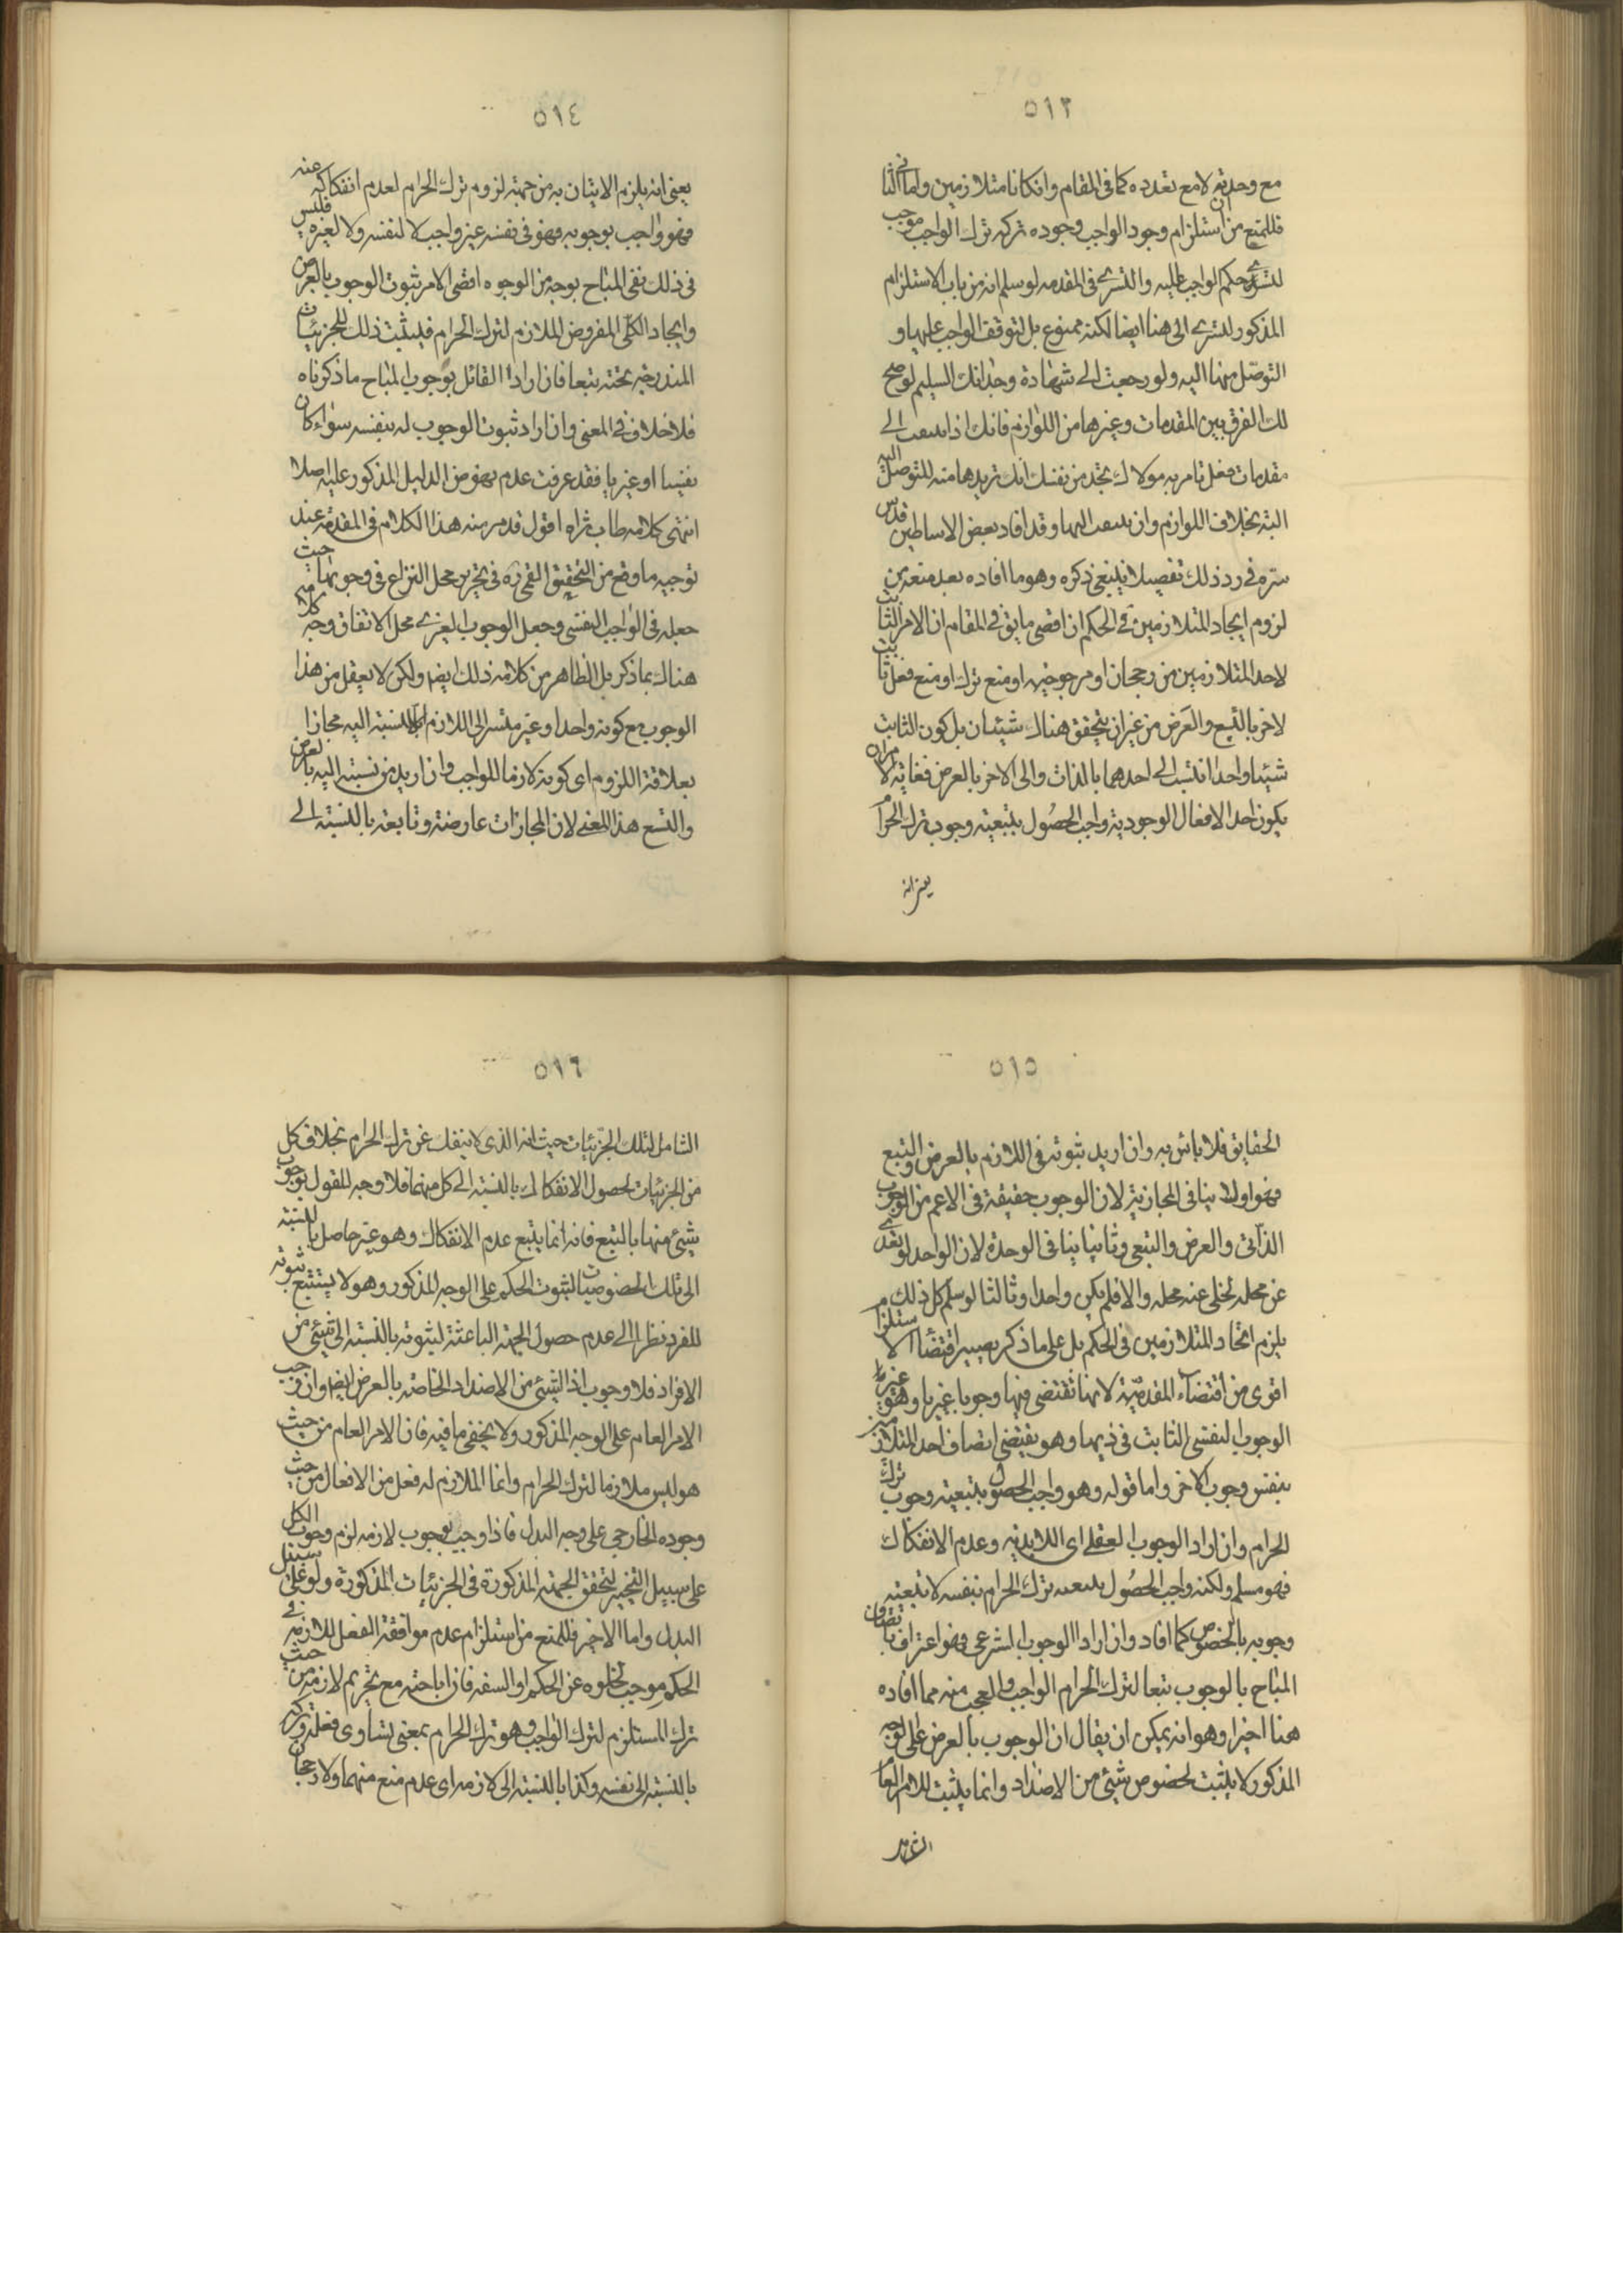 ٥١٣
مع وحدته لا مع تعدده كما فى المقام وان كانا متلازمين واما الثانى
فللمنع من استلزام وجود الواجب وجوده تركه ترك الواجب موجب
لتسرى حكم الواجب اليه والتسرى فى المقدمه لو سلم انه من باب الاستلزام
المذكور لتسرى الى هنا ايضا لكنه ممنوع بل لتوقف الواجب عليها و
التوصّل منها اليه ولو رجعت الى شهادة وجدانك السليم لوضح
لك الفرق بين المقدمات وغيرها من اللوازم فانك اذا الى
مقدمات فعل تامر به مولاك تجد من نفسك انك تريدها منه للتوصل اليه
البته بخلاف اللوازم وان اليها وقد افاد بعض الاساطين قدس
سره فى رد ذلك تفصيلا ينبغى ذكره وهو ما افاده بعد منعه من
لزوم ايجاد المتلازمين فى الحكم ان اقصى ما يق فى المقام ان الامر الثابت
لاحد المتلازمين من رجحان او مرجوحيه او منع ترك او منع فعل ثابت
لاخر بالتبع والعرض من غير ان يتحقق هناك شيئان بل كون الثابت
شيئا واحدا انتسب الى احدهما بالذات والى الاخر بالعرض فغايه الامر ان
يكون احد الافعال الوجوديه واجب الحصُول بتبعيته وجوب ترك الحرام
يعنى انه
٥١٤
يعنى انه يلزم الاتيان به من جهته لزوم ترك الحرام لعدم انفكاكه عنه
فهو واجب بوجوبه فهو فى نفسه غير واجب لا لنفسه ولا لغيره فليس
فى ذلك نفى المباح بوجه من الوجوه اقصى الامر ثبوت الوجوب بالعرض
وايجاد الكلى المفروض الملازم لترك الحرام فيثبت ذلك للجزئيات
المندرجه تحته تبعا فان اراد القائل بوجوب المباح ما ذكرناه
فلا خلاف فى المعنى وان اراد ثبوت الوجوب له بنفسه سواء كان
نفسيا او غيريا فقد عرفت عدم نهوض الدليل المذكور عليه اصلا
انتهى كلامه طاب ثراه اقول قد مر منه هذا الكلام فى المقدمه عند
توجيه ما وقع من التحقيق القمى ره فى تحرير محل النزاع فى وجوبها حيث
جعله فى الواجب النفسى وجعل الوجوب الغيرى محل الاتفاق وجه كلامه
هناك بما ذكر بل الظاهر من كلامه ذلك ايضا ولكن لا يعقل من هذا
الوجوب مع كونه واحدا وغير متسر الى اللازم الا بالنسبة اليه مجازا
بعلاقة اللزوم اى كونه لازما للواجب وان اريد من نسبته اليه بالعرض
والتبع هذا المعنى لان المجازات عارضة وتابعة بالنسبته الى
٥١٥
الحقايق فلا باس به وان اريد ثبوته فى اللازم بالعرض والتبع
فهو اولا ينافى المجازية لان الوجوب حقيقة فى الاعم من الوجوب
الذاتى والعرض والتبعى وثانيا ينافى الوحدة لان الواحد لو تعدى
عن محله لخلى عنه محله والا فلم يكن واحدا وثالثا لو سلم كل ذلك
يلزم اتحاد المتلازمين فى الحكم بل على ما ذكر يصير اقتضاء الاستلزام
اقوى من اقتضاء المقدميّة لانها تقتضى فيها وجوبا غيريا وهو غير
الوجوب النفسى الثابت فى ذيها وهو يقتضى اتصاف احد المتلازمين
بنفس وجوب الاخر واما قوله وهو واجب الحصول بتبعيته وجوب ترك
الحرام وان اراد الوجوب العقلى اى اللابديه وعدم الانفكاك
فهو مسلم ولكنه واجب الحصُول ترك الحرام بنفسه لا بتبعيته
وجوبه بالخصوص كما افاد وان اراد الوجوب الشرعى فهو اعتراف باتصاف
المباح بالوجوب تبعا لترك الحرام الواجب والعجب منه مما افاده
هنا اخيرا وهو انه يمكن ان يقال ان الوجوب بالعرض على الوجه
المذكور لا يثبت لخصوص شيئ من الاضداد وانما يثبت للامر العام
الشامل
٥١٦
الشامل لتلك الجزئيات حيث انه الذى لا ينفك عن ترك الحرام بخلاف كل
من الجزئيات لحصول الانفكاك بالنسبته الى كل منهما فلا وجه للقول بوجوب
شيئ منها بالتبع فانه انما يتبع عدم الانفكاك وهو غير حاصل بالنسبته
الى تلك الخصوصيات لثبوت الحكم على الوجه المذكور وهو لا يستتبع ثبوته
للفرد نظرا الى عدم حصول الجهته الباعثته لثبوته بالنسبته الى شيئ من
الافراد فلا وجوب اذا لشيئ من الاضداد الخاصه بالعرض ايضا وان وجب
الامر العام على الوجه المذكور ولا يخفى ما فيه فان الامر العام من حيث
هو ليس ملازما لترك الحرام وانما الملازم له فعل من الافعال من حيث
وجوده الخارجى على وجه البدل فاذا وجب بوجوب لازمه لزم وجوب الكل
على سبيل التخيير لتحقق الجهته المذكورة فى الجزئيات المذكورة ولو على سبيل
البدل واما الاخير فللمنع من استلزام عدم موافقة الفعل للازمه فى
الحكم موجب لخلوه عن الحكم او السفه فان اباحته مع تحريم لازمه من حيث
ترك المستلزم لترك الواجب وهو ترك الحرام بمعنى تساوى فعله وتركه
بالنسبته الى نفسه وكذا بالنسبته الى لازمه اى عدم منع منهما ولا رجحان